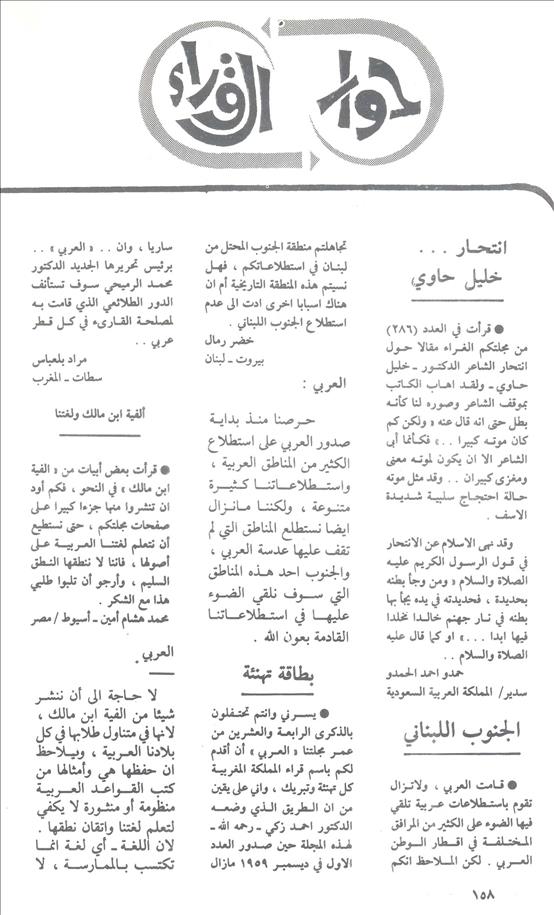 حوار القراء
انتحار . . .
خليل حاوي
● قرأت في العدد (٢٨٦)
من مجلتكم الغراء مقالا حول
انتحار الشاعر الدكتور ـ خليل
حاوي ـ ولقد اهاب الكاتب
بموقف الشاعر وصوره لنا كأنه
بطل حتى انه قال عنه « ولكن كم
كان موته كبيرا . . » فكأنما أبى
الشاعر الا ان يكون لموته معنى
ومغزى كبيران . . وقد مثل موته
حالة احتجاج سلبية شديدة
الاسف .
وقد نهى الاسلام عن الانتحار
في قول الرسول الكريم عليه
الصلاة والسلام « ومن وجأ بطنه
بحديدة ، فحديدته في يده يجأ بها
بطنه في نار جهنم خالدا مخلدا
فيها ابدا . . . » او كما قال عليه
الصلاة والسلام . .
حمدو احمد الحمدو
سدير/ المملكة العربية السعودية
الجنوب اللبناني
● قامت العربي ، ولا تزال
تقوم باستطلاعات عربية تلقي
فيها الضوء على الكثير من المرافق
المختلفة في اقطار الوطن
العربي . لكن الملاحظ انكم
تجاهلتم منطقة الجنوب المحتل من
لبنان في استطلاعاتكم ، فهل
نسيتم هذه المنطقة التاريخية أم ان
هناك اسبابا اخرى ادت الى عدم
استطلاع الجنوب اللبناني .
خضر رمال
بيروت ـ لبنان
العربي :
حرصنا منذ بداية
صدور العربي على استطلاع
الكثير من المناطق العربية ،
واستطلاعاتنا كثيرة
متنوعة ، ولكننا مانزال
ايضا نستطلع المناطق التي لم
تقف عليها عدسة العربي ،
والجنوب احد هذه المناطق
التي سوف نلقي الضوء
عليها في استطلاعاتنا
القادمة بعون الله .
بطاقة تهنئة
● يسرني وانتم تحتفلون
بالذكرى الرابعة والعشرين من
عمر مجلتنا « العربي » أن أقدم
لكم باسم قراء المملكة المغربية
كل تهنئة وتبريك ، واني على يقين
من ان الطريق الذي وضعه
الدكتور احمد زكي ـ رحمه الله ـ
لهذه المجلة حين صدور العدد
الاول في ديسمبر ١٩٥٩ مازال
ساريا ، وان . . « العربي » . .
برئيس تحريرها الجديد الدكتور
محمد الرميحي سوف تستأنف
الدور الطلائعي الذي قامت به
لمصلحة القارىء في كل قطر
عربي . .
مراد بلعباس
سطات ـ المغرب
ألفية ابن مالك ولغتنا
● قرأت بعض أبيات من « الفية
ابن مالك » في النحو ، فكم أود
ان تنشروا منها جزءا كبيرا على
صفحات مجلتكم ، حتى نستطيع
أن نتعلم لغتنا العربية على
أصولها ، فاننا لا ننطقها النطق
السليم ، وأرجو أن تلبوا طلبي
هذا مع الشكر .
محمد هشام أمين ـ أسيوط /مصر
العربي
لا حاجة الى أن ننشر
شيئا من الفية ابن مالك ،
لانها في متناول طلابها في كل
بلادنا العربية ، ويلاحظ
ان حفظها هي وأمثالها من
كتب القواعد العربية
منظومة أو منثورة لا يكفي
لتعلم لغتنا واتقان نطقها .
لان اللغة ـ أي لغة انما
تكتسب بالممارسة ، لا
١٥٨